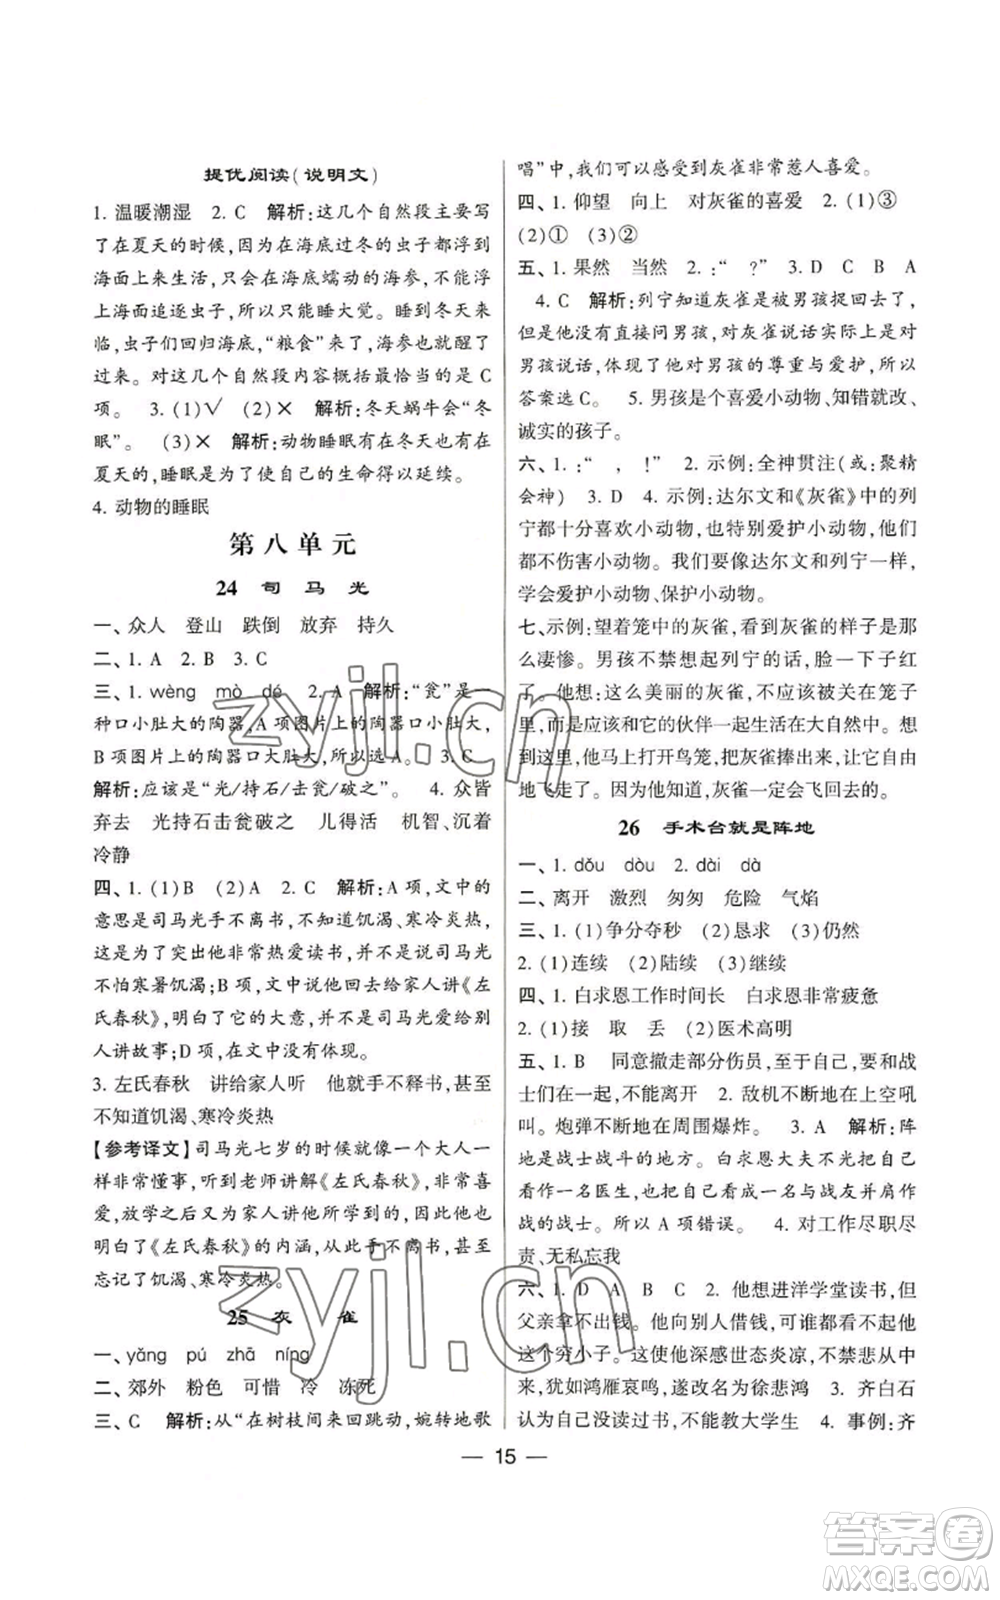 提优阅读(说明文)
1. 温暖潮湿　2. C　解析:这几个自然段主要写
了在夏天的时候,因为在海底过冬的虫子都浮到
海面上来生活,只会在海底蠕动的海参,不能浮
上海面追逐虫子,所以只能睡大觉。睡到冬天来
临,虫子们回归海底,“粮食”来了,海参也就醒了
过来。对这几个自然段内容概括最恰当的是 C
项。　3. (1)√　(2)×　解析:冬天蜗牛会“冬
眠”。　(3)×　解析:动物睡眠有在冬天也有在
夏天的,睡眠是为了使自己的生命得以延续。
4. 动物的睡眠
第八单元
24　司　马　光
一、众人　登山　跌倒　放弃　持久
二、1. A　2. B　3. C
三、1. wèng　mò　dé　2. A　解析:“瓮”是一
种口小肚大的陶器,A 项图片上的陶器口小肚大,
B 项图片上的陶器口大肚大,所以选 A。　3. C
解析:应该是“光/持石/击瓮/破之”。　4. 众皆
弃去　光持石击瓮破之　儿得活　机智、沉着
冷静
四、1. (1)B　(2)A　2. C　解析:A 项,文中的
意思是司马光手不离书,不知道饥渴、寒冷炎热,
这是为了突出他非常热爱读书,并不是说司马光
不怕寒暑饥渴;B 项,文中说他回去给家人讲《左
氏春秋》,明白了它的大意,并不是说司马光爱给别
人讲故事;D 项,在文中没有体现。
3. 左氏春秋　讲给家人听　他就手不释书,甚至
不知道饥渴、寒冷炎热
【参考译文】司马光七岁的时候就像一个大人一
样非常懂事,听到老师讲解《左氏春秋》,非常喜
爱,放学之后又为家人讲他所学到的,因此他也
明白了《左氏春秋》的内涵,从此手不离书,甚至
忘记了饥渴、寒冷炎热。
25　灰　　雀
一、yǎng　pú　zhā　níng
二、郊外　粉色　可惜　冷　冻死
三、C　解析:从“在树枝间来回跳动,婉转地歌
唱”中,我们可以感受到灰雀非常惹人喜爱。
四、1. 仰望　向上　对灰雀的喜爱　2. (1)③
(2)①　(3)②
五、1. 果然　当然　2. :“　?”　3. D　C　B　A
4. C　解析:列宁知道灰雀是被男孩捉回去了,
但是他没有直接问男孩,对灰雀说话实际上是对
男孩说话,体现了他对男孩的尊重与爱护,所以
答案选 C。　5. 男孩是个喜爱小动物、知错就改、
诚实的孩子。
六、1. :“　,　!”　2. 示例:全神贯注(或:聚精
会神)　3. D　4. 示例:达尔文和《灰雀》中的列
宁都十分喜欢小动物,也特别爱护小动物,他们
都不伤害小动物。我们要像达尔文和列宁一样,
学会爱护小动物、保护小动物。
七、示例:望着笼中的灰雀,看到灰雀的样子是那
么凄惨。男孩不禁想起列宁的话,脸一下子红
了。他想:这么美丽的灰雀,不应该关在笼子里
里,而是应该和它的伙伴一起生活在大自然中。想
到这里,他马上打开鸟笼,把灰雀捧出来,让它自由
地飞走了。因为他知道,灰雀一定会飞回去的。
26　手术台就是阵地
一、1. dǒu　dòu　2. dài　dà
二、离开　激烈　匆匆　危险　气焰
三、1. (1)争分夺秒　(2)恳求　(3)仍然
2. (1)连续　(2)陆续　(3)继续
四、1. 白求恩工作时间长　白求恩非常疲惫
2. (1)接　取　丢　(2)医术高明
五、1. B　同意撤走部分伤员,至于自己,要和战
士们在一起,不能离开　2. 敌机不断地在上空吼
叫。炮弹不断地在周围爆炸。　3. A　解析:阵
地是战士战斗的地方。白求恩大夫不光把自己
看作一名医生,也把自己当成一名与战友并肩作
战的战士。所以 A 项错误。　4. 对工作尽职尽
责、无私忘我
六、1. D　A　B　C　2. 他想进洋学堂读书,但
父亲拿不出钱。他去向别人借钱,可没人愿借给
这个穷小子。因此他深感世态炎凉,不禁悲从中
来,犹如鸿雁哀鸣,遂改名为徐悲鸿　3. 齐白石
认为自己没读过书,不能教大学生　4. 事例:齐
— 15 —
zyjl.cn
zyjl.cn
答案圈
MXQE.COM